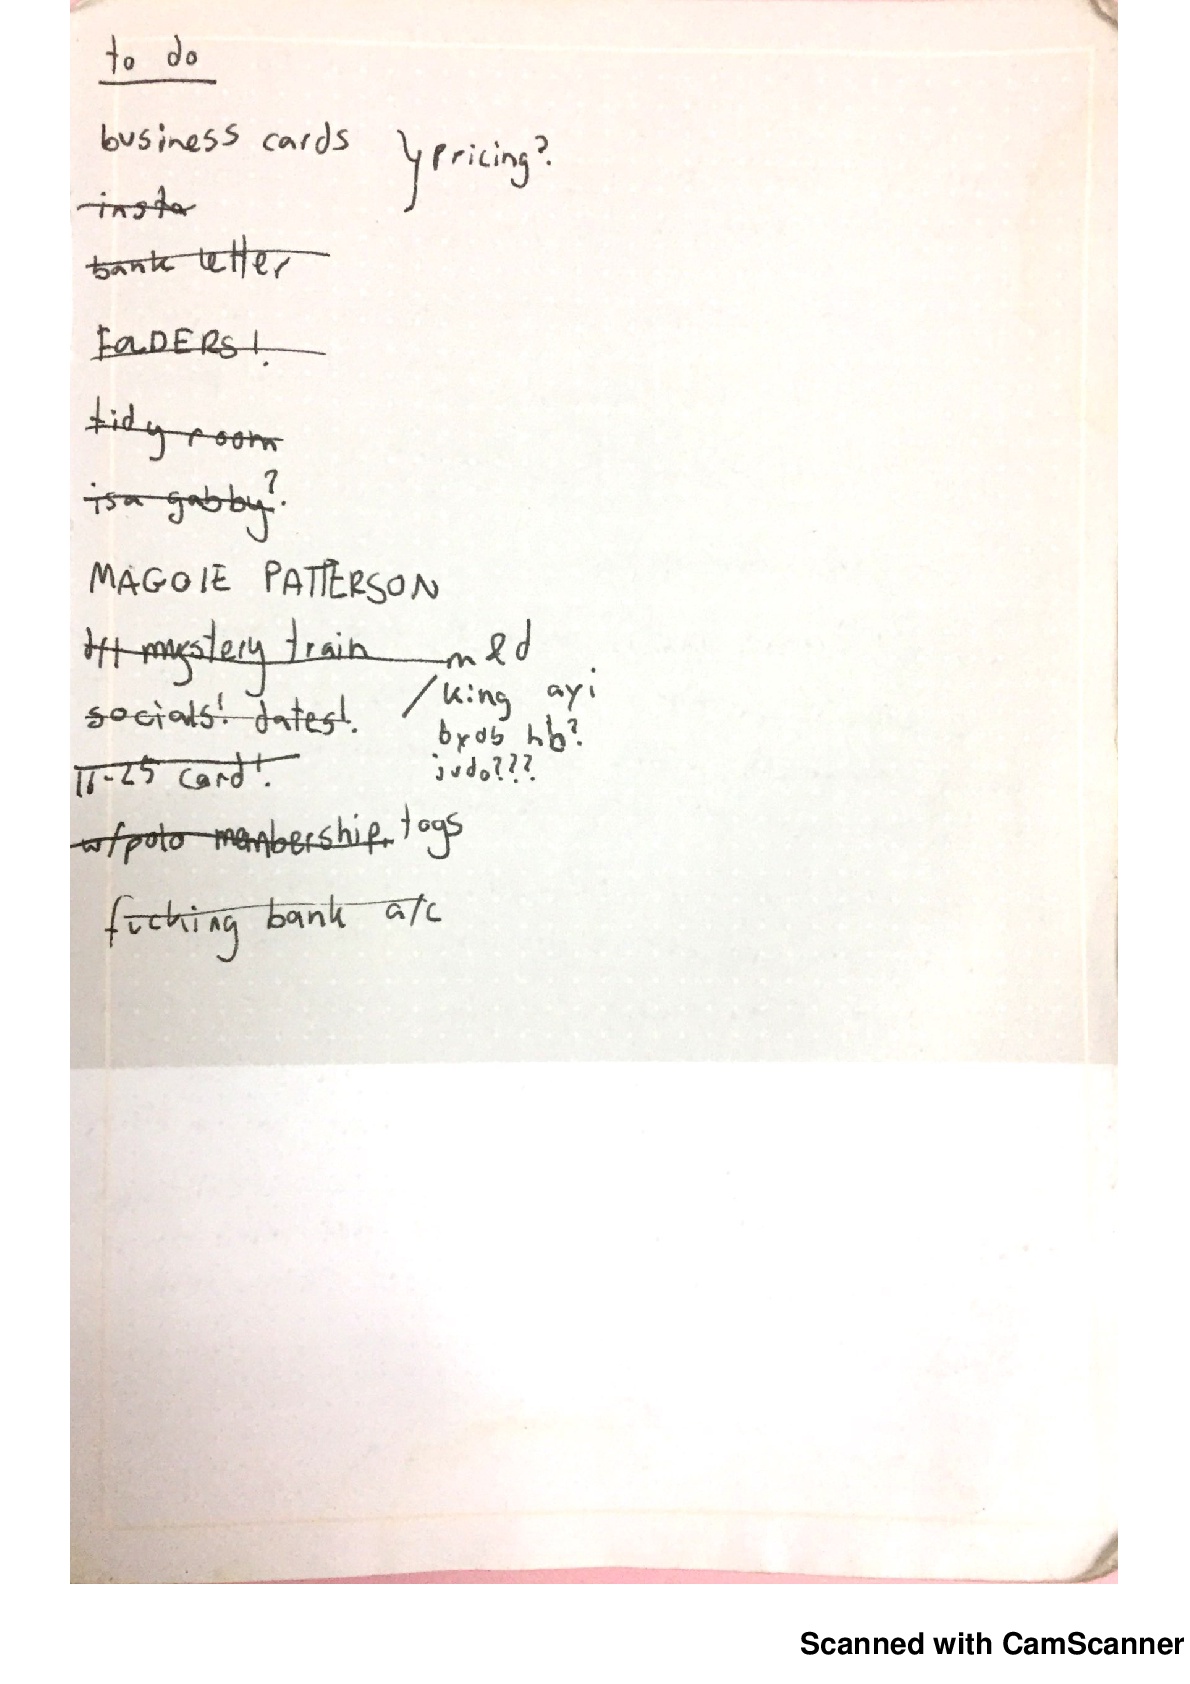 to do
business cards
pricing?
insta
bank letter
FaDERS!
tidy room
isa gabby?
MAGGIE PATTERSON
mystery train
socials! dates!
/king ayi
judo???
16-25 card!
w/polo membership. togs
fucking bank a/c
Scanned with CamScanner